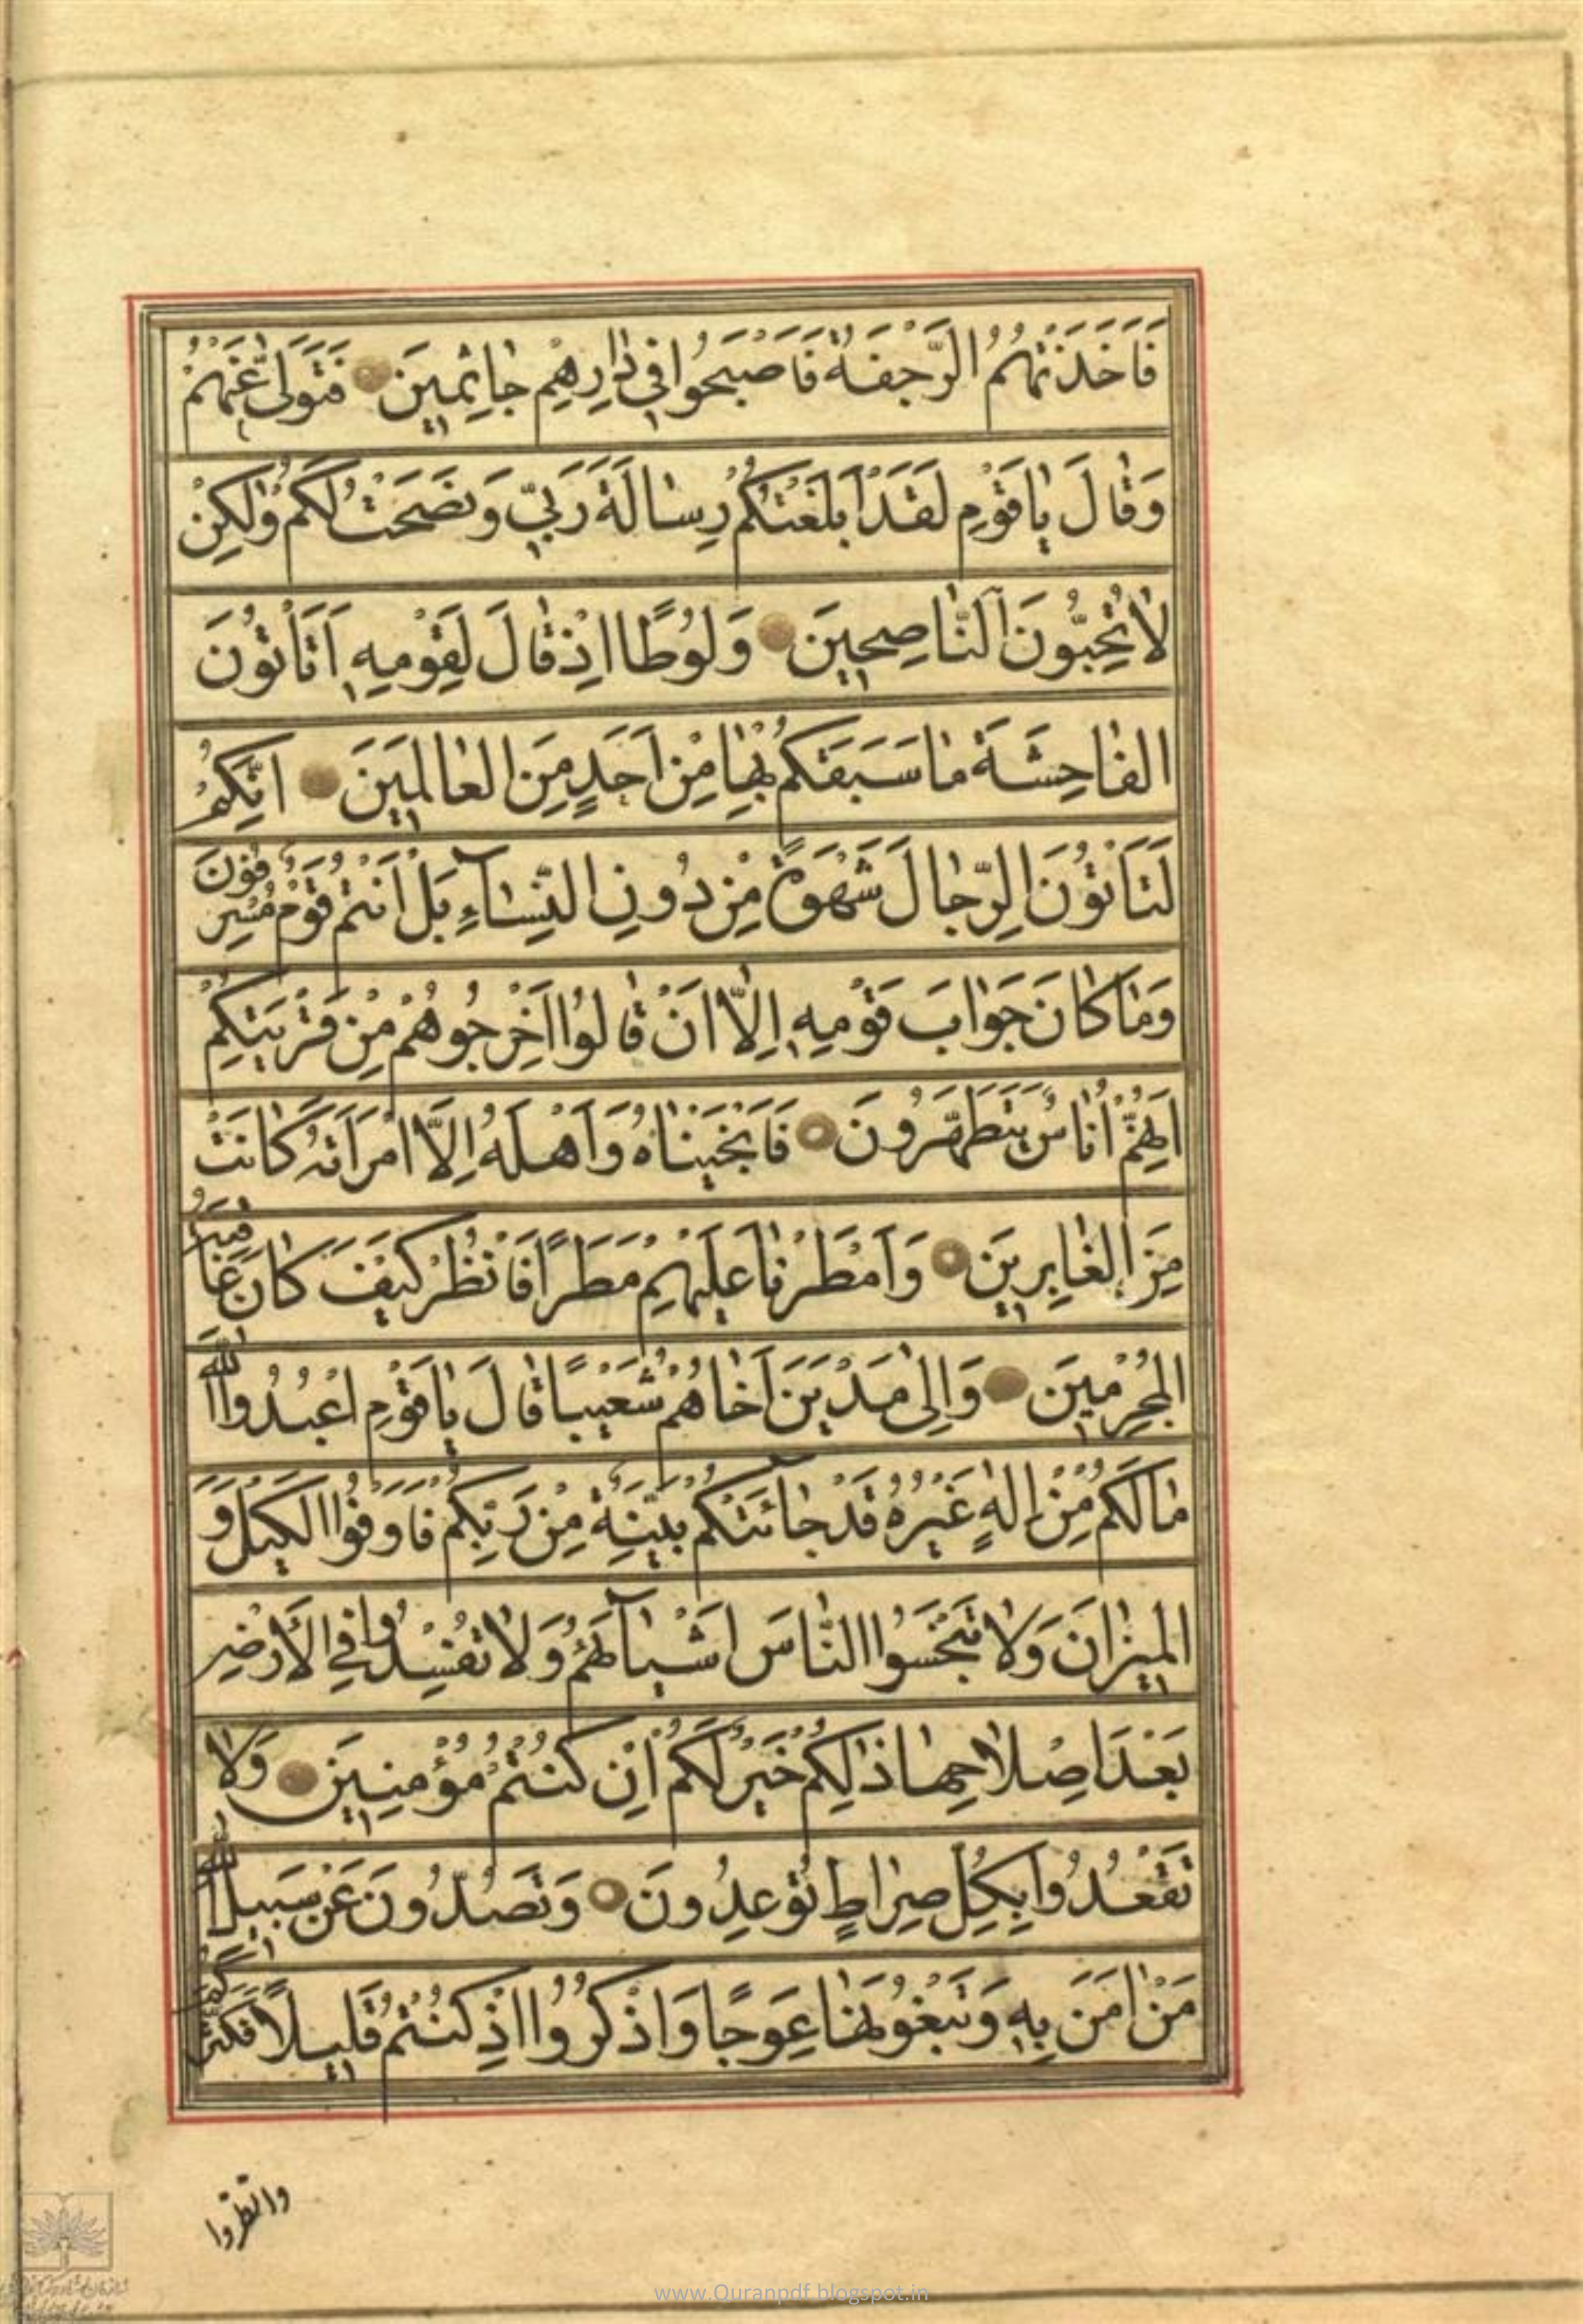 فَاَخَذَتْهُمُ الرَّجْفَةُ فَاَصْبَحُوا فِي دَارِهِمْ جَاثِمِينَ فَتَوَلّٰى عَنْهُمْ
وَقَالَ يَا قَوْمِ لَقَدْ اَبْلَغْتُكُمْ رِسَالَةَ رَبِّي وَنَصَحْتُ لَكُمْ وَلٰكِنْ
لَا تُحِبُّونَ النَّاصِحِينَ وَلُوطًا اِذْ قَالَ لِقَوْمِهِ اَتَاْتُونَ
الْفَاحِشَةَ مَا سَبَقَكُمْ بِهَا مِنْ اَحَدٍ مِنَ الْعَالَمِينَ اِنَّكُمْ
لَتَاْتُونَ الرِّجَالَ شَهْوَةً مِنْ دُونِ النِّسَآءِ بَلْ اَنْتُمْ قَوْمٌ مُسْرِفُونَ
وَمَا كَانَ جَوَابَ قَوْمِهِ اِلَّا اَنْ قَالُوا اَخْرِجُوهُمْ مِنْ قَرْيَتِكُمْ
اِنَّهُمْ اُنَاسٌ يَتَطَهَّرُونَ فَاَنْجَيْنَاهُ وَاَهْلَهُ اِلَّا امْرَاَتَهُ كَانَتْ
مِنَ الْغَابِرِينَ وَاَمْطَرْنَا عَلَيْهِمْ مَطَرًا فَانْظُرْ كَيْفَ كَانَ عَاقِبَةُ
الْمُجْرِمِينَ وَاِلٰى مَدْيَنَ اَخَاهُمْ شُعَيْبًا قَالَ يَا قَوْمِ اعْبُدُوا اللّٰهَ
مَا لَكُمْ مِنْ اِلٰهٍ غَيْرُهُ قَدْ جَائَتْكُمْ بَيِّنَةٌ مِنْ رَبِّكُمْ فَاَوْفُوا الْكَيْلَ وَ
الْمِيزَانَ وَلَا تَبْخَسُوا النَّاسَ اَشْيَآئَهُمْ وَلَا تُفْسِدُوا فِي الْاَرْضِ
بَعْدَ اِصْلَاحِهَا ذٰلِكُمْ خَيْرٌ لَكُمْ اِنْ كُنْتُمْ مُؤْمِنِينَ وَلَا
تَقْعُدُوا بِكُلِّ صِرَاطٍ تُوعِدُونَ وَتَصُدُّونَ عَنْ سَبِيلِ اللّٰهِ
مَنْ اٰمَنَ بِهِ وَتَبْغُونَهَا عِوَجًا وَاذْكُرُوا اِذْ كُنْتُمْ قَلِيلًا فَكَثَّرَكُمْ
وانظروا
www.Quranpdf.blogspot.in